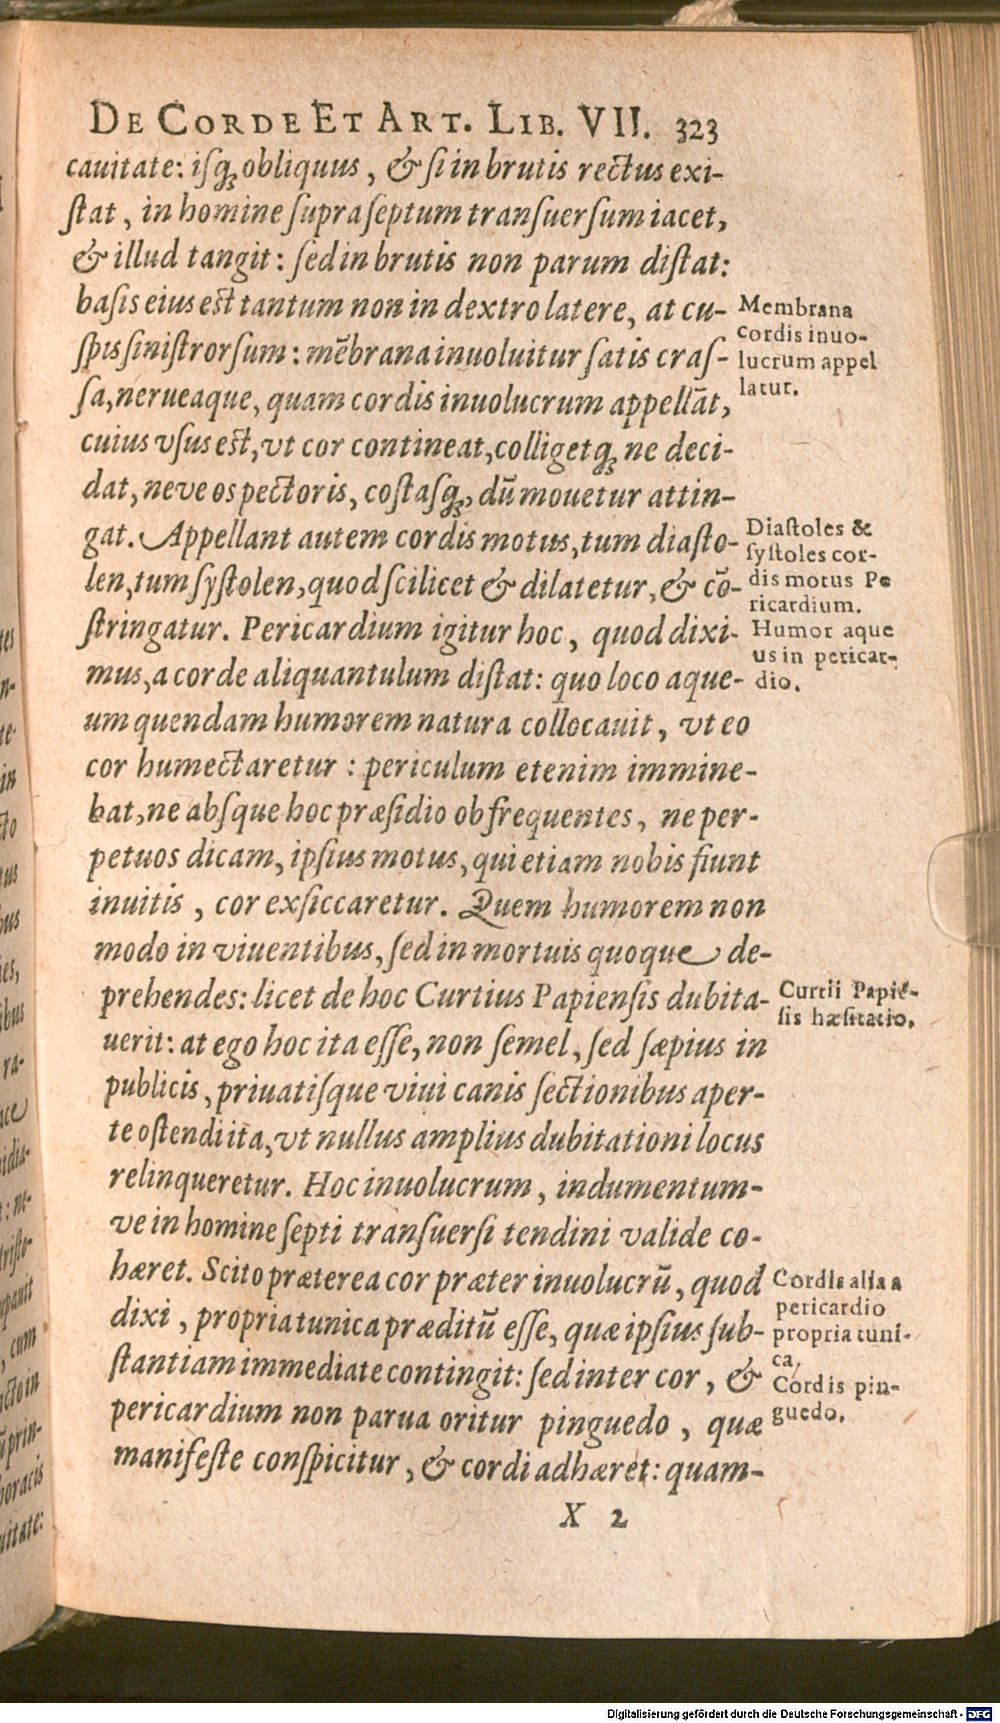 DE CORDE ET ART. LIB. VII. 323
cauitate: iſqꝫ obliquus, & ſi in brutis rectus exi-
ſtat, in homine ſupra ſeptum tranſuerſum iacet,
& illud tangit: ſed in brutis non parum diſtat:
baſis eius eſt tantum non in dextro latere, at cu-
ſpis ſiniſtrorſum: mēbrana inuoluitur ſatis craſ-
ſa, nerueaque, quam cordis inuolucrum appellāt,
cuius vſus eſt, vt cor contineat, colligetqꝫ ne deci-
dat, neve os pectoris, coſtaſqꝫ, dū mouetur attin-
gat. Appellant autem cordis motus, tum diaſto-
len, tum ſyſtolen, quod ſcilicet & dilatetur, & cō-
ſtringatur. Pericardium igitur hoc, quod dixi-
mus, a corde aliquantulum diſtat: quo loco aque-
um quendam humorem natura collocauit, vt eo
cor humectaretur: periculum etenim immine-
bat, ne abſque hoc præſidio ob frequentes, ne per-
petuos dicam, ipſius motus, qui etiam nobis fiunt
inuitis, cor exſiccaretur. Quem humorem non
modo in viuentibus, ſed in mortuis quoque de-
prehendes: licet de hoc Curtius Papienſis dubita-
uerit: at ego hoc ita eſſe, non ſemel, ſed ſæpius in
publicis, priuatiſque viui canis ſectionibus aper-
te oſtendi ita, vt nullus amplius dubitationi locus
relinqueretur. Hoc inuolucrum, indumentum-
ve in homine ſepti tranſuerſi tendini valide co-
hæret. Scito præterea cor præter inuolucrū, quod
dixi, propria tunica præditū eſſe, quæ ipſius ſub-
ſtantiam immediate contingit: ſed inter cor, &
pericardium non parua oritur pinguedo, quæ
manifeſte conſpicitur, & cordi adhæret: quam-
X 2
Membrana
cordis inuo-
lucrum appel
latur.
Diaſtoles &
ſyſtoles cor-
dis motus Pe
ricardium.
Humor aque
us in pericar-
dio.
Curtii Papiē-
ſis hæſitatio.
Cordis alia a
pericardio
propria tuni-
ca,
Cordis pin-
guedo.
Digitalisierung gefördert durch die Deutsche Forschungsgemeinschaft - DFG